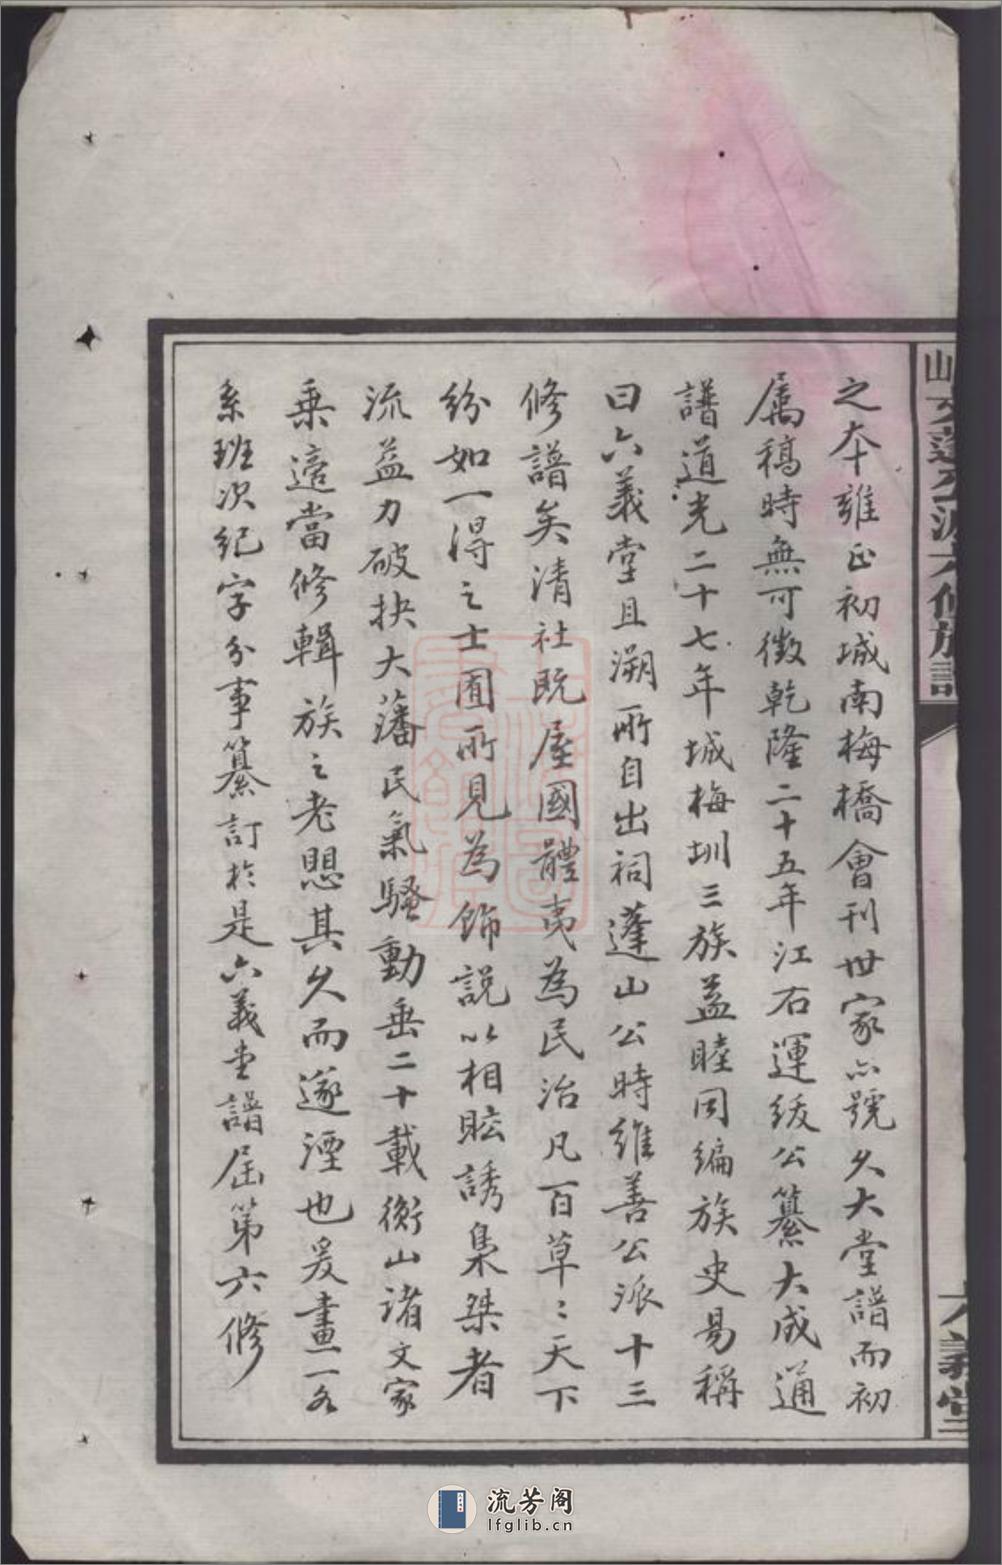 之本雍正初城南梅橋會刊世家亦號久大堂譜而初
屬稿時無可徵乾隆二十五年江右運綏公纂大成通
譜道光二十七年城梅圳三族益睦同編族史易稱
曰六義堂且溯所自出祠蓬山公時維善公派十三
修譜矣清社既屋國體夷為民治凡百草〻天下
紛如一得之士囿所見為飾說以相眩誘梟桀者
流益力破抉大藩民氣騷動垂二十載衡山諸文家
乘適當修輯族之老愳其久而遂湮也爰畫一各
系班次紀字分事纂訂於是六義堂譜屆第六修
六修族譜
六義堂
流芳阁
lfglib.cn